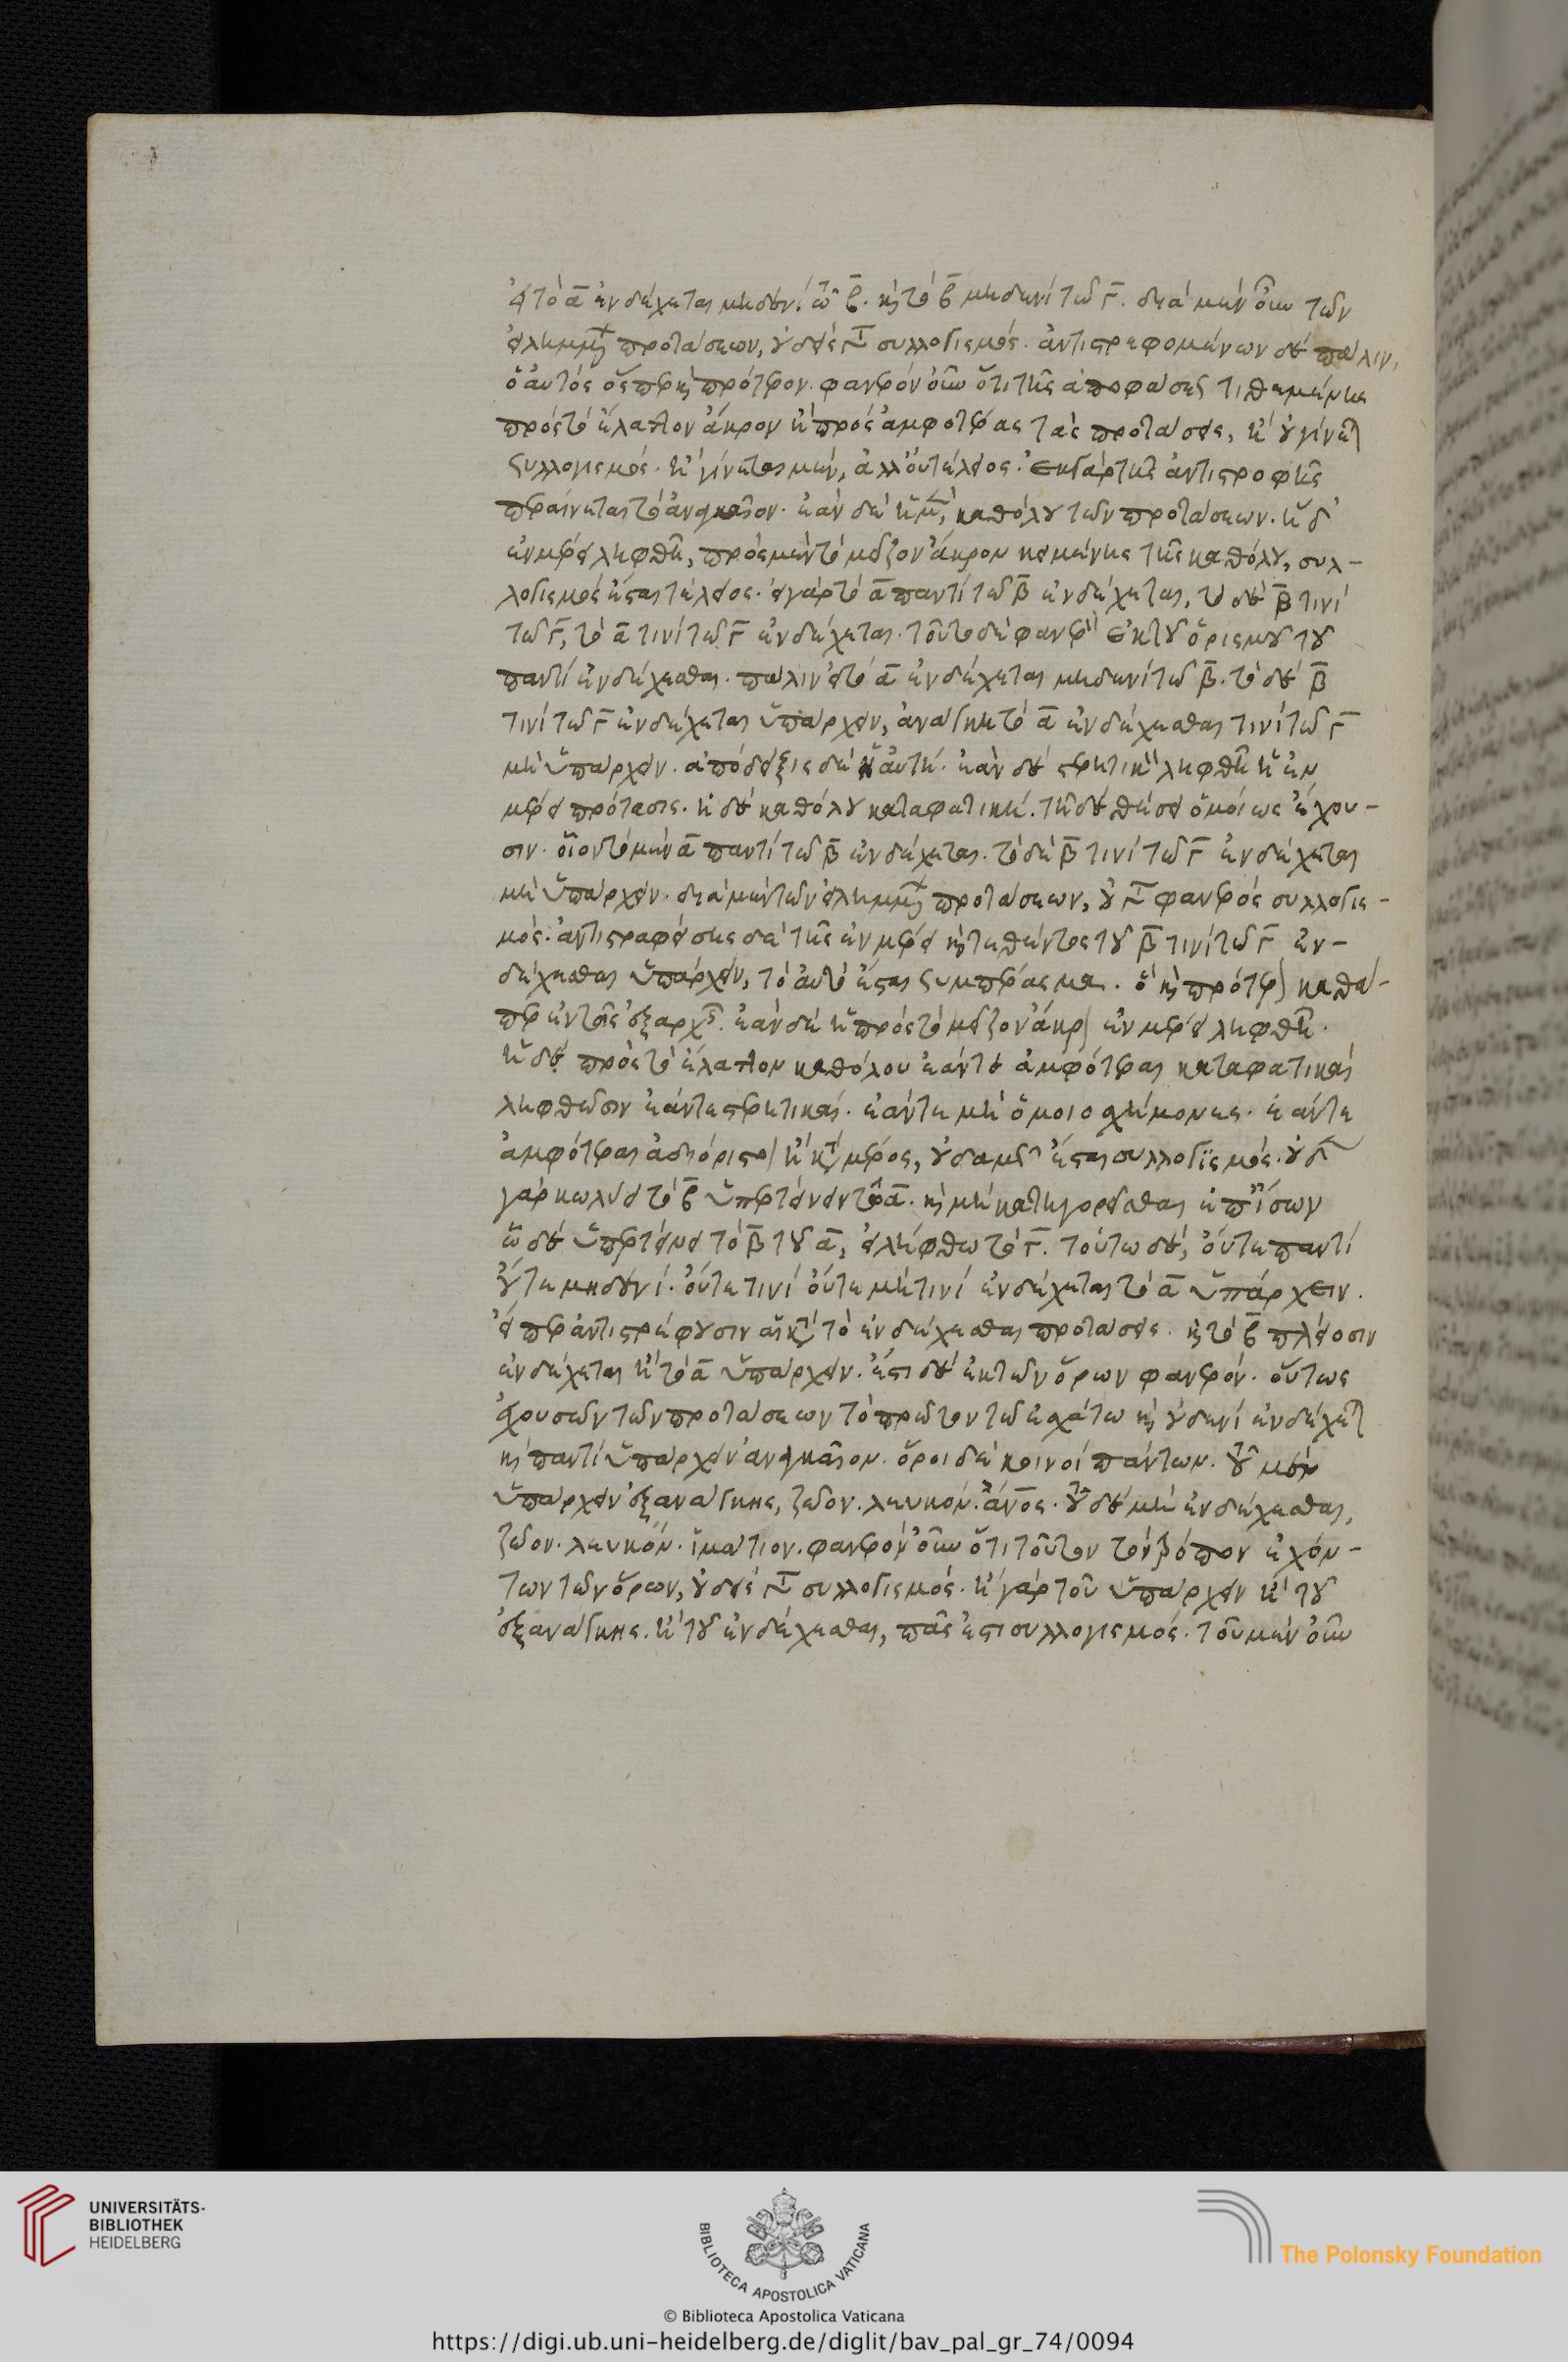 εἰ τὸ α ἐνδέχεται μηδενὶ τῷ β. καὶ τὸ β μηδενὶ τῷ γ. διὰ μὲν οὖν τῶν
εἰλημμένων προτάσεων, οὐδεὶς γίνεται συλλογισμός. ἀντιστρεφομένων δὲ πάλιν,
ὁ αὐτὸς ὅσπερ καὶ πρότερον. φανερὸν οὖν ὅτι τῆς ἀποφάσεως τιθεμένης
πρὸς τὸ ἔλαττον ἄκρον ἢ πρὸς ἀμφοτέρας τὰς προτάσεις, ἢ οὐ γίνεται
συλλογισμός. ἢ γίνεται μέν, ἀλλ' οὐ τέλειος. ἐκ γὰρ τῆς ἀντιστροφῆς
περαίνεται τὸ ἀναγκαῖον. ἐὰν δὲ ἡ μὲν καθόλου τῶν προτάσεων. ἡ δ'
ἐν μέρει ληφθῇ, πρὸς μὲν τὸ μεῖζον ἄκρον κειμένης τῆς καθόλου, συλ-
λογισμὸς ἔσται τέλειος. εἰ γὰρ τὸ α παντὶ τῷ β ἐνδέχεται, τὸ δὲ β τινὶ
τῷ γ, τὸ α τινὶ τῷ γ ἐνδέχεται. τοῦτο δὲ φανερὸν ἐκ τοῦ ὁρισμοῦ τοῦ
παντὶ ἐνδέχεσθαι. πάλιν εἰ τὸ α ἐνδέχεται μηδενὶ τῷ β. τὸ δὲ β
τινὶ τῷ γ ἐνδέχεται ὑπάρχειν, ἀνάγκη τὸ α ἐνδέχεσθαι τινὶ τῷ γ
μὴ ὑπάρχειν. ἀπόδειξις δὲ ἡ αὐτή. ἐὰν δὲ στερητικὴ ληφθῇ ἡ ἐν
μέρει πρότασις. ἡ δὲ καθόλου καταφατική. τῇ δὲ θέσει ὁμοίως ἔχου-
σιν. οἷον τὸ μὲν α παντὶ τῷ β ἐνδέχεται. τὸ δὲ β τινὶ τῷ γ ἐνδέχεται
μὴ ὑπάρχειν. διὰ μὲν τῶν εἰλημμένων προτάσεων, οὐ γίνεται φανερὸς συλλογισ-
μός. ἀντιστραφείσης δὲ τῆς ἐν μέρει καὶ τεθέντος τοῦ β τινὶ τῷ γ ἐν-
δέχεσθαι ὑπάρχειν, τὸ αὐτὸ ἔσται συμπέρασμα. ὃ καὶ πρότερον καθά-
περ ἐν τοῖς ἐξ ἀρχῆς. ἐὰν δὲ ἡ πρὸς τὸ μεῖζον ἄκρον ἐν μέρει ληφθῇ.
ἡ δὲ πρὸς τὸ ἔλαττον καθόλου ἐάντε ἀμφότεραι καταφατικαὶ
ληφθῶσιν ἐάντε στερητικαί. ἐάντε μὴ ὁμοιοσχήμονες. ἐάντε
ἀμφότεραι ἀδιόριστοι ἢ κατὰ μέρος, οὐδαμῶς ἔσται συλλογισμός. οὐδὲν
γὰρ κωλύει τὸ β ὑπερτείνειν τοῦ α. καὶ μὴ κατηγορεῖσθαι ἐπ' ἴσων
ᾧ δὲ ὑπερτείνει τὸ β τοῦ α, εἰλήφθω τὸ γ. τούτῳ δέ, οὔτε παντὶ
οὔτε μηδενί. οὔτε τινὶ οὔτε μή τινι ἐνδέχεται τὸ α ὑπάρχειν.
εἴπερ ἀντιστρέφουσιν αἱ κατὰ τὸ ἐνδέχεσθαι προτάσεις. καὶ τὸ β πλείοσιν
ἐνδέχεται ἢ τὸ α ὑπάρχειν. ἔτι δὲ ἐκ τῶν ὅρων φανερόν. οὕτως
ἐχουσῶν τῶν προτάσεων τὸ πρῶτον τῷ ἐσχάτῳ καὶ οὐδενὶ ἐνδέχεται
καὶ παντὶ ὑπάρχειν ἀναγκαῖον. ὅροι δὲ κοινοὶ πάντων. τοῦ μὲν
ὑπάρχειν ἐξ ἀνάγκης, ζῶον. λευκόν. ἄνος. τοῦ δὲ μὴ ἐνδέχεσθαι,
ζῶον. λευκόν. ἱμάτιον. φανερὸν οὖν ὅτι τοῦτον τὸν τρόπον ἐχόν-
των τῶν ὅρων, οὐδεὶς γίνεται συλλογισμός. ἢ γὰρ τοῦ ὑπάρχειν ἢ τοῦ
ἐξ ἀνάγκης. ἢ τοῦ ἐνδέχεσθαι, πᾶς ἐστι συλλογισμός. τοῦ μὲν οὖν
UNIVERSITÄTS-
BIBLIOTHEK
HEIDELBERG
BIBLIOTECA APOSTOLICA VATICANA
The Polonsky Foundation
© Biblioteca Apostolica Vaticana
https://digi.ub.uni-heidelberg.de/diglit/bav_pal_gr_74/0094